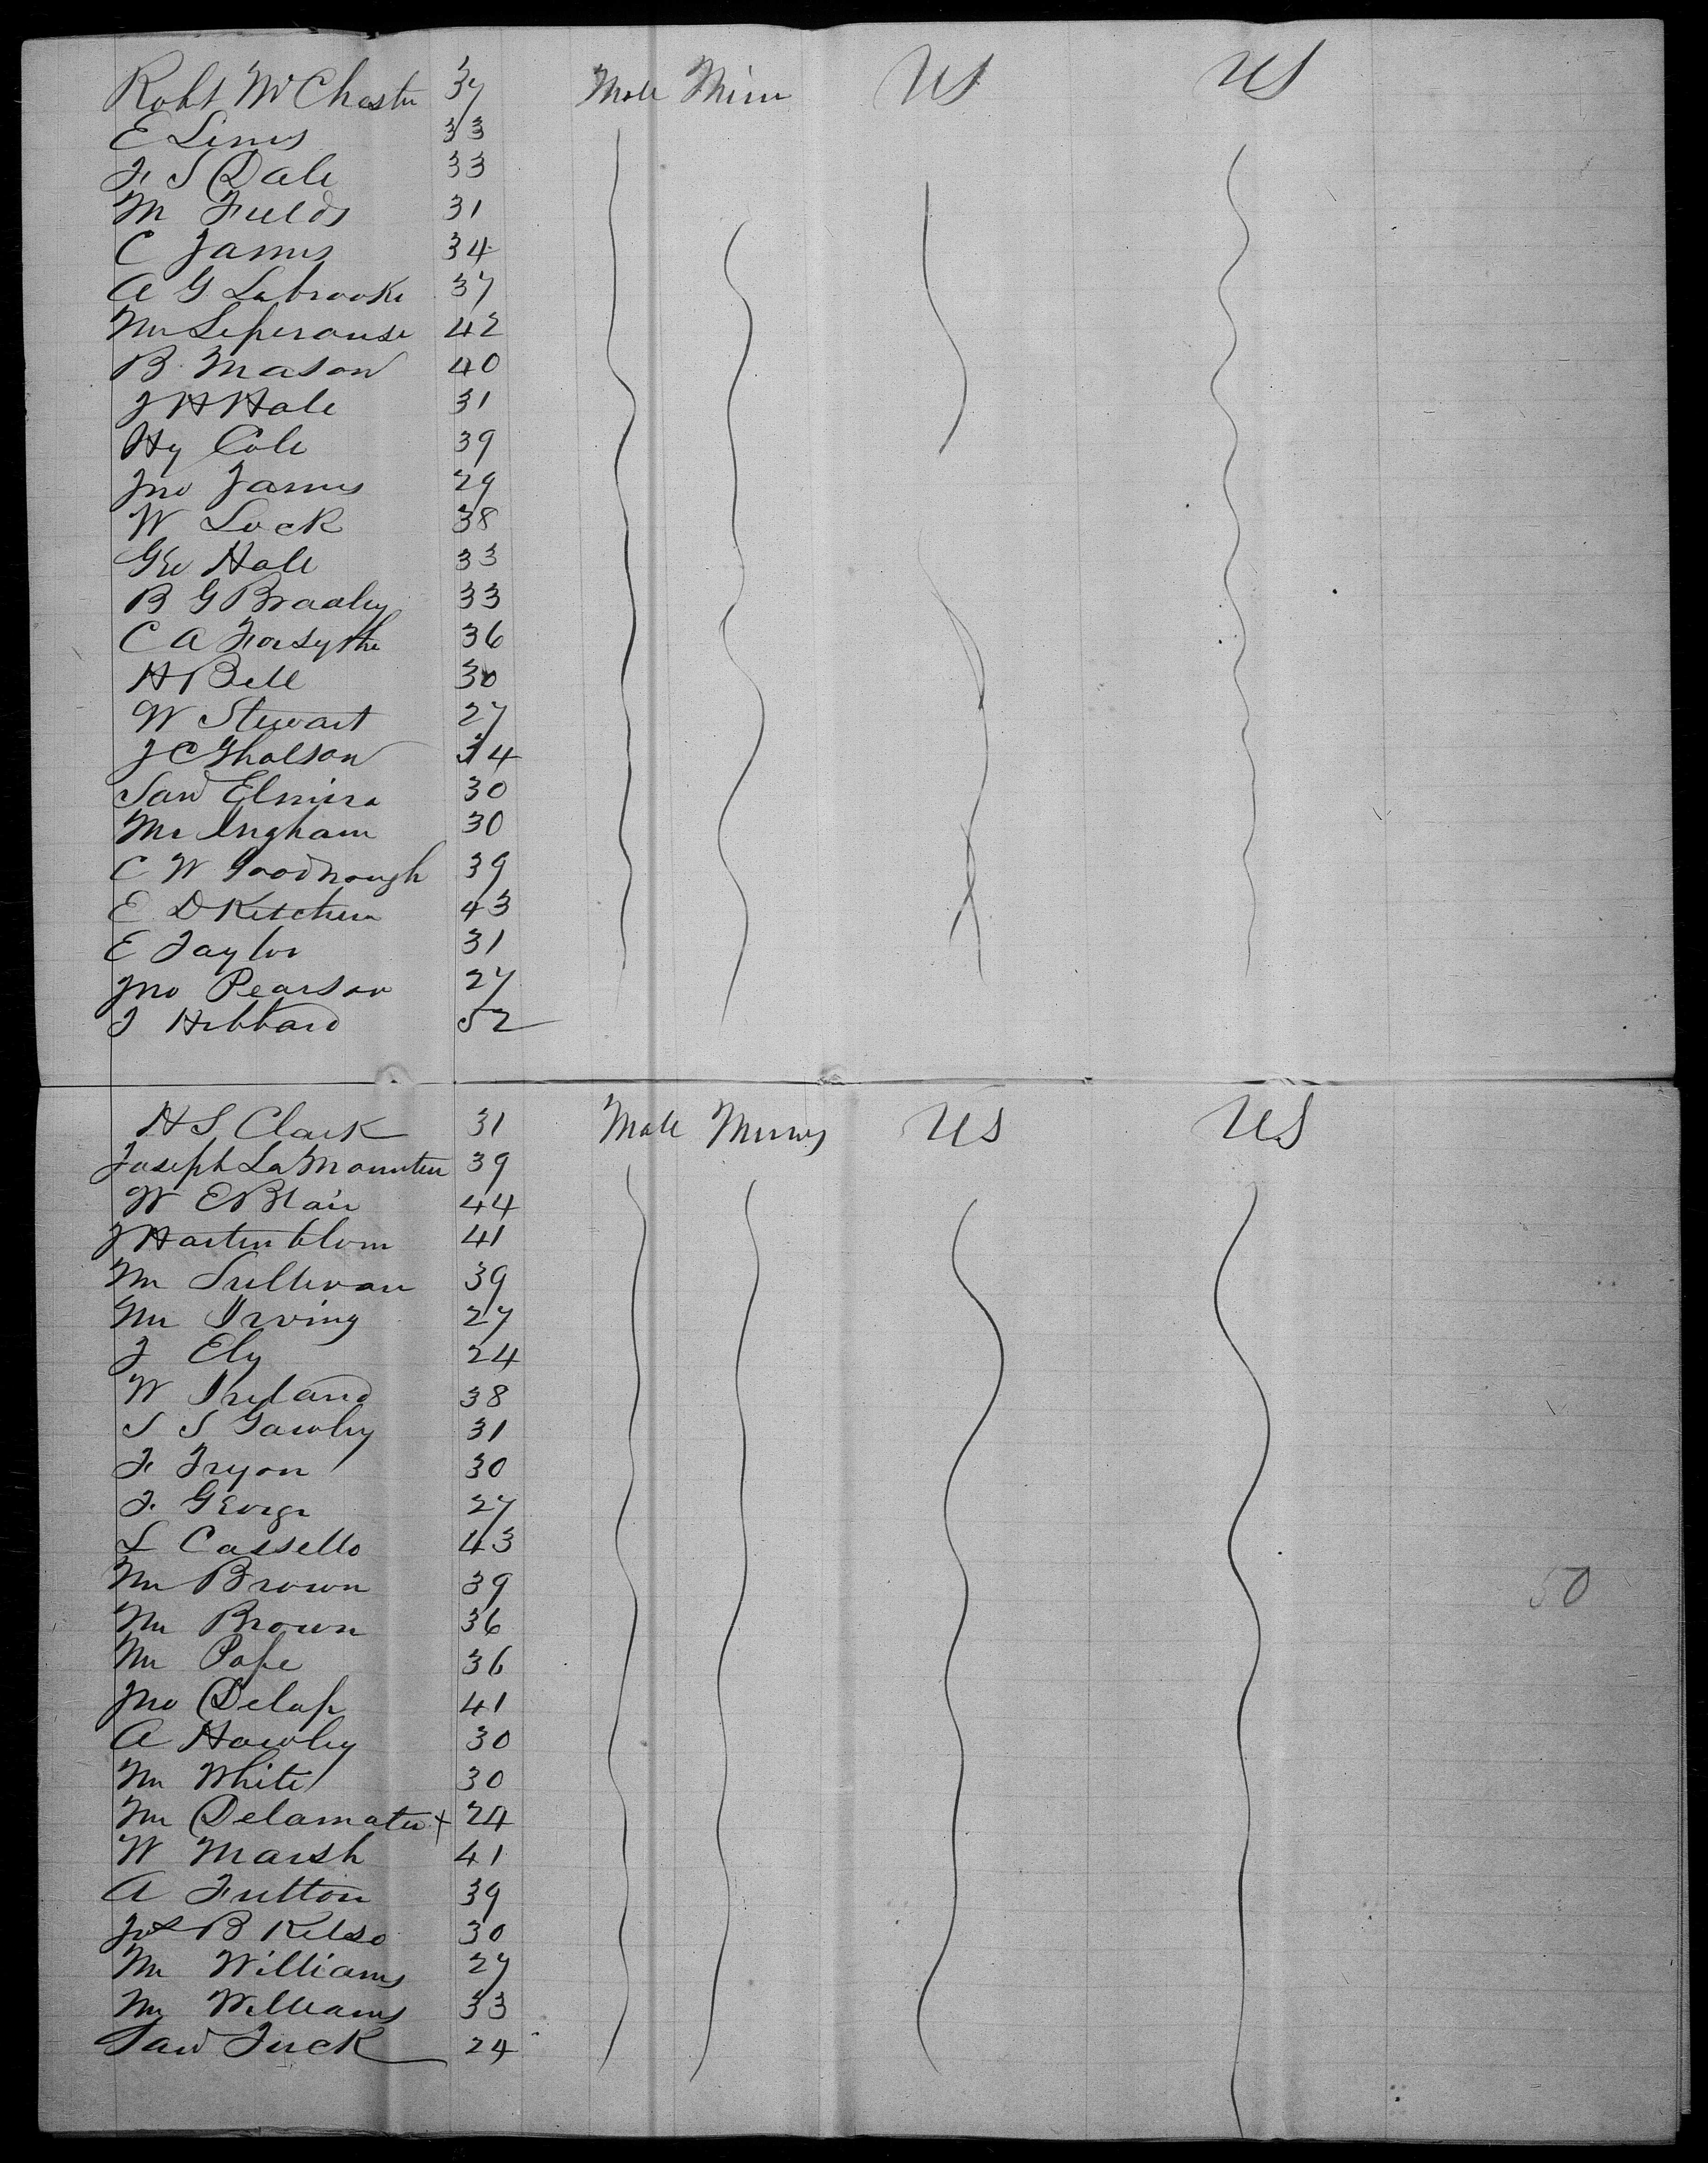 Robt McChester 37 Male Miner US US
E Lines 33
F. S Dale 33
M Fields 31
C James 34
A G Labrooke 37
Mr Leperouse 42
B. Mason 40
J H Hale 31
Hy Cole 39
Jno James 29
W Lock 38
Geo Hall 33
B G Bradley 33
C A Forsythe 36
H Bell 30
W Stewart 27
J C Gholson 34
Sand Elmira 30
Mr Ingham 30
C W Goodnough 39
E D Ketchum 43
E Taylor 31
Jno Pearson 27
J Hibbard 52
H S Clark 31 Male Miners US US
Joseph La Mounten 39
W E Blair 44
J Hartenblom 41
Mr Sullivan 39
Mr Irving 27
J Ely 24
W Ireland 38
S S Gawley 31
F. Tryon 30
F. George 27
L Cassello 43
Mr Brown 39
Mr Brown 36
Mr Pope 36
Jno Delap 41
A Hawley 30
Mr White 30
Mr Delamater + 24
W Marsh 41
A Fulton 39
Jos B Kelso 30
Mr Williams 27
Mr Williams 33
Tuck 24
50